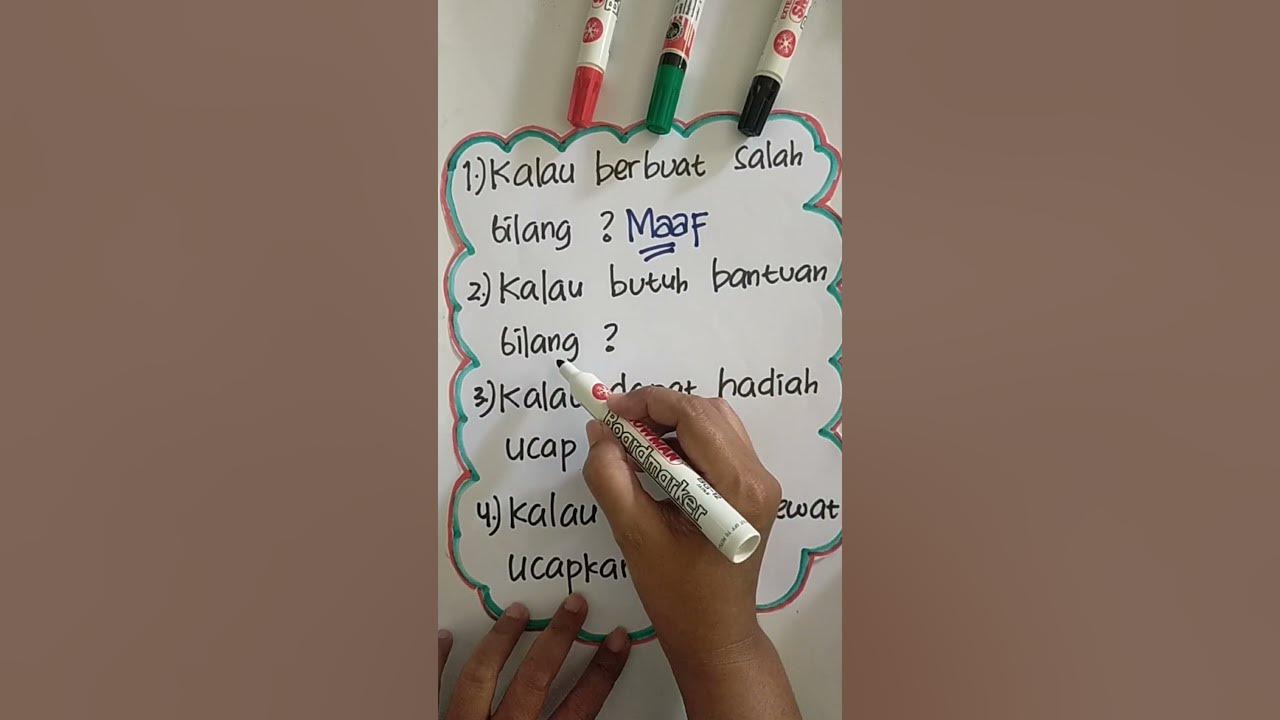 1.) Kalau berbuat salah
bilang ? Maaf
2.) Kalau butuh bantuan
bilang ?
3.) Kalau dapat hadiah
ucap
4.) Kalau
ucapkan
SNOWMAN
Boardmarker